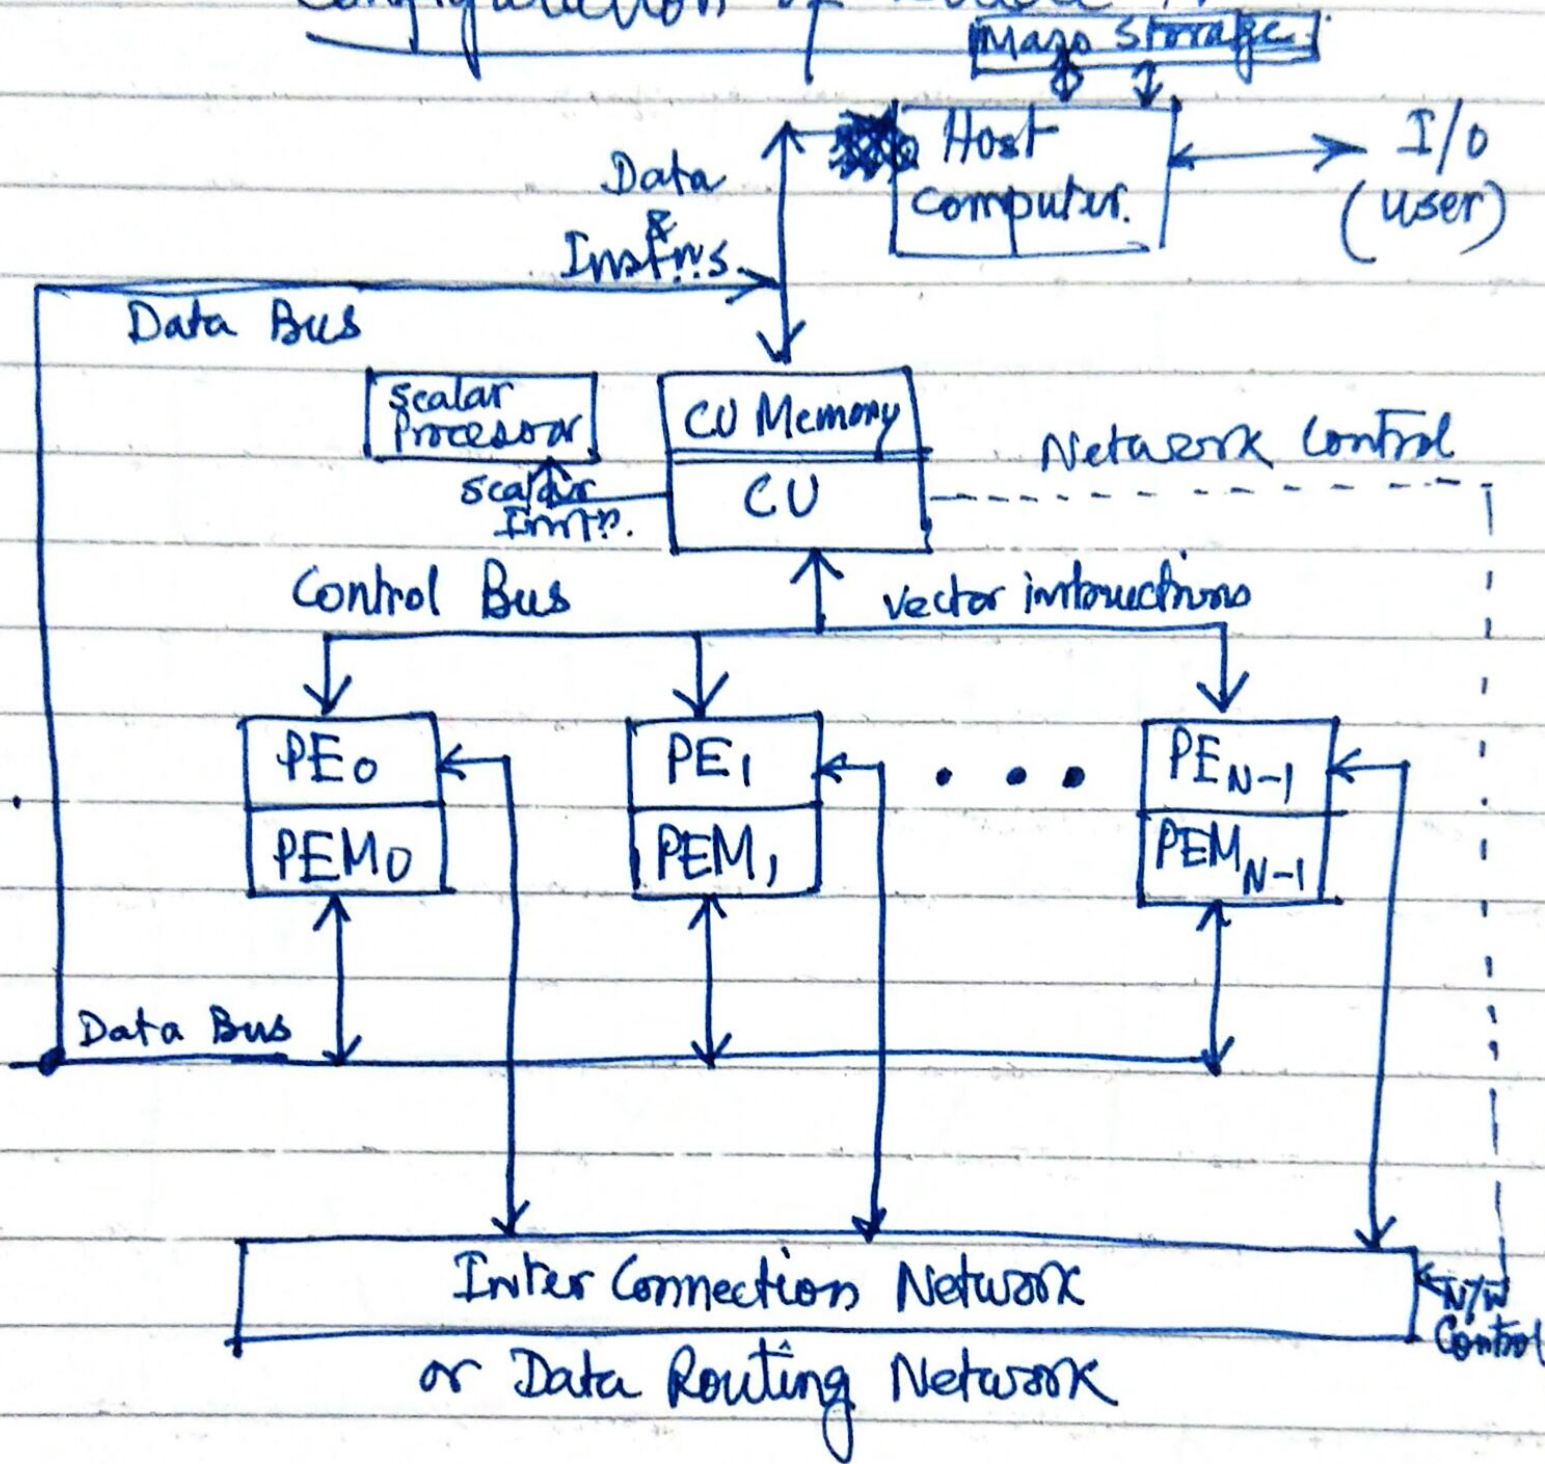 Configuration of
Mass Storage
Host
Computer.
I/O
(user)
Data
&
Instrns.
Data Bus
Scalar
Processor
CU Memory
CU
Network Control
Scalar
Instn.
Control Bus
Vector instructions
PE0
PEM0
PE1
PEM1
• • •
PEN-1
PEMN-1
Data Bus
Inter Connection Network
N/W
Control
or Data Routing Network